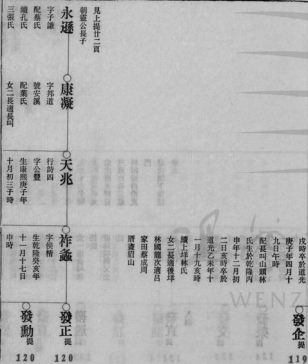 見上提廿二頁
朝靈公長子
永遜
字子謙
配蔡氏
續孔氏
三張氏
康凝
字邦道
號安溪
配葉氏
女二長適長叫
天兆
行詩四
字公豐
生康熙庚子年
十月初三子時
祚螽
字侯楷
生乾隆癸亥年
十一月十七日
申時
發正提
120
發勳提
120
戌時卒於道光
庚子年四月十
九日午時
配長叫山頭林
氏生於乾隆丙
申年十二月初
二亥時卒於
道光乙未年十
一月十九亥時
續上垟林氏
女二長適後垟
林國龍次適呂
家田蔡成周
潛盡眉山
發企提
119
WENZ